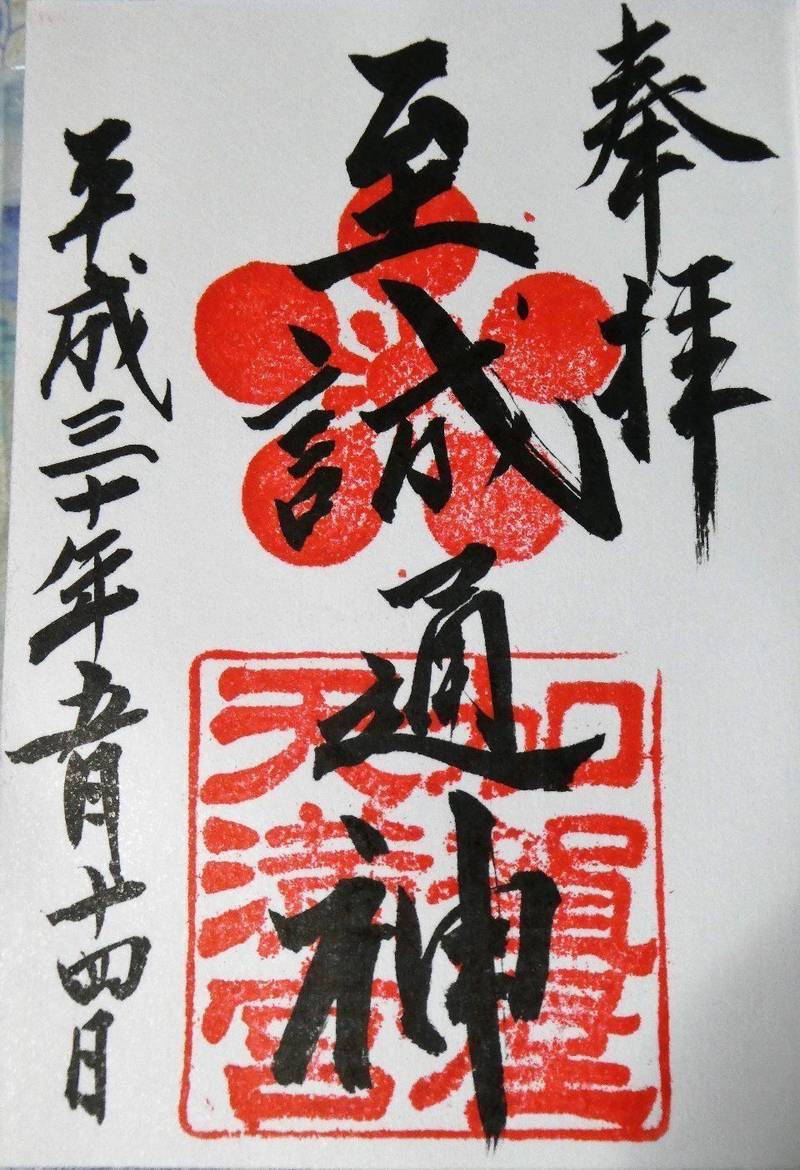 奉拝
至誠通神
加賀屋
天満宮
平成三十年五月十四日